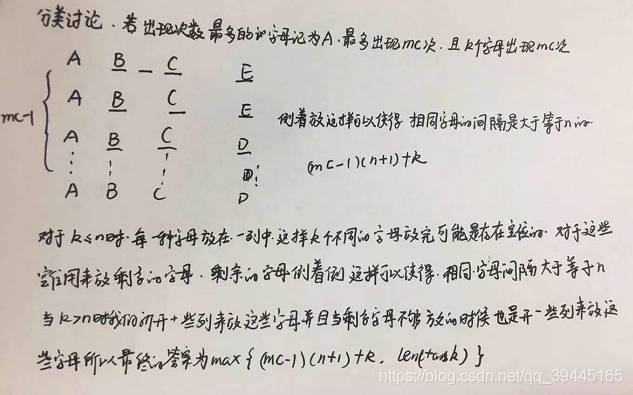 分类讨论. 若出现次数最多的字母记为A. 最多出现mc次. 且k个字母出现mc次
A B C E
A B C E
mc-1
倒着放这样可以使得 相同字母的间隔是大于等于n的.
A B C D
(mc-1)(n+1)+k
A B C D
对于k≤n时. 每一种字母放在一列中. 这样k个不同的字母放完可能是存在空位的. 对于这些
空位用来放剩余的字母. 剩余的字母倒着倒 这样可以使得. 相同字母间隔大于等于n
当k>n时我们开一些列来放这些字母并且当剩余字母不够放的时候也是开一些列来放这
些字母所以最终的答案为max{(mc-1)(n+1)+k, len(task)}
https://blog.csdn.net/qq_39445165